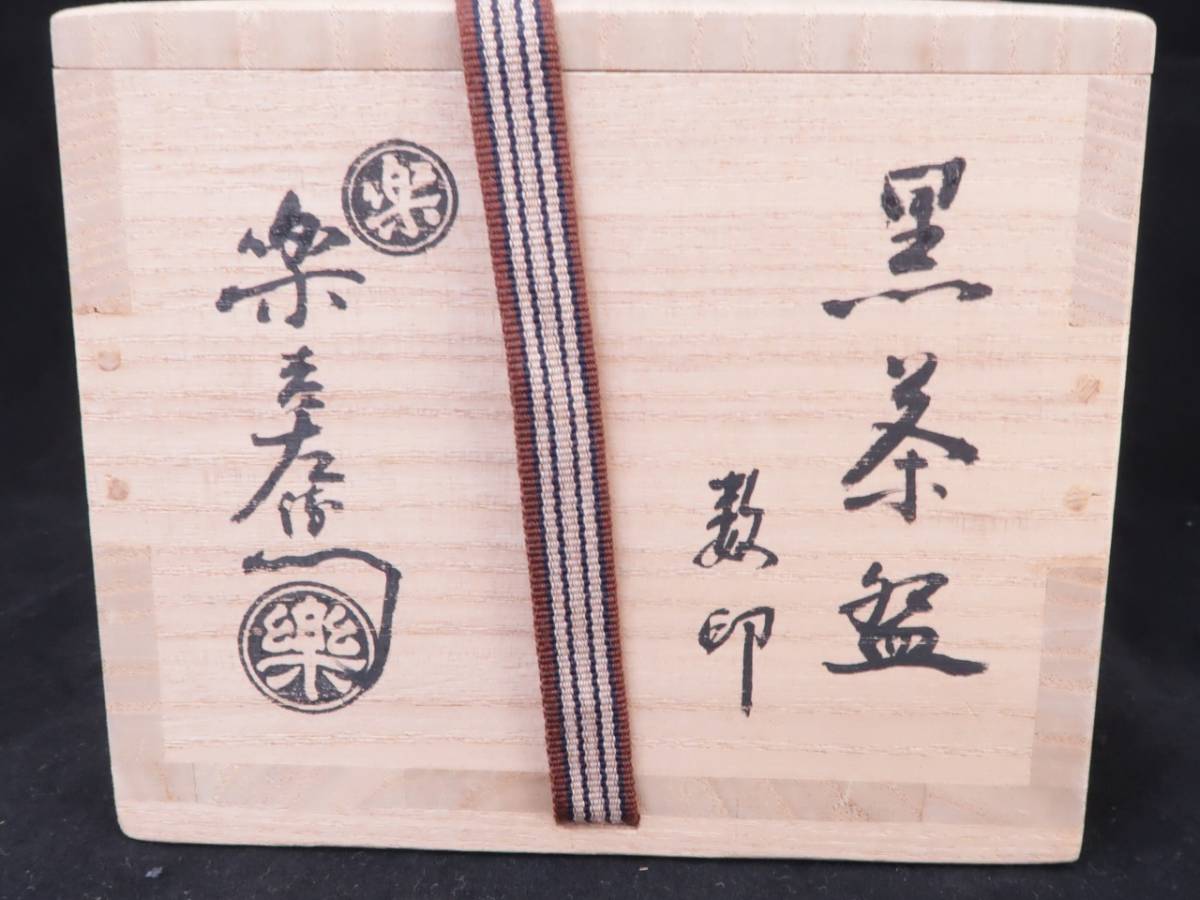 黒茶盌
数印
楽
樂吉左衛門
樂